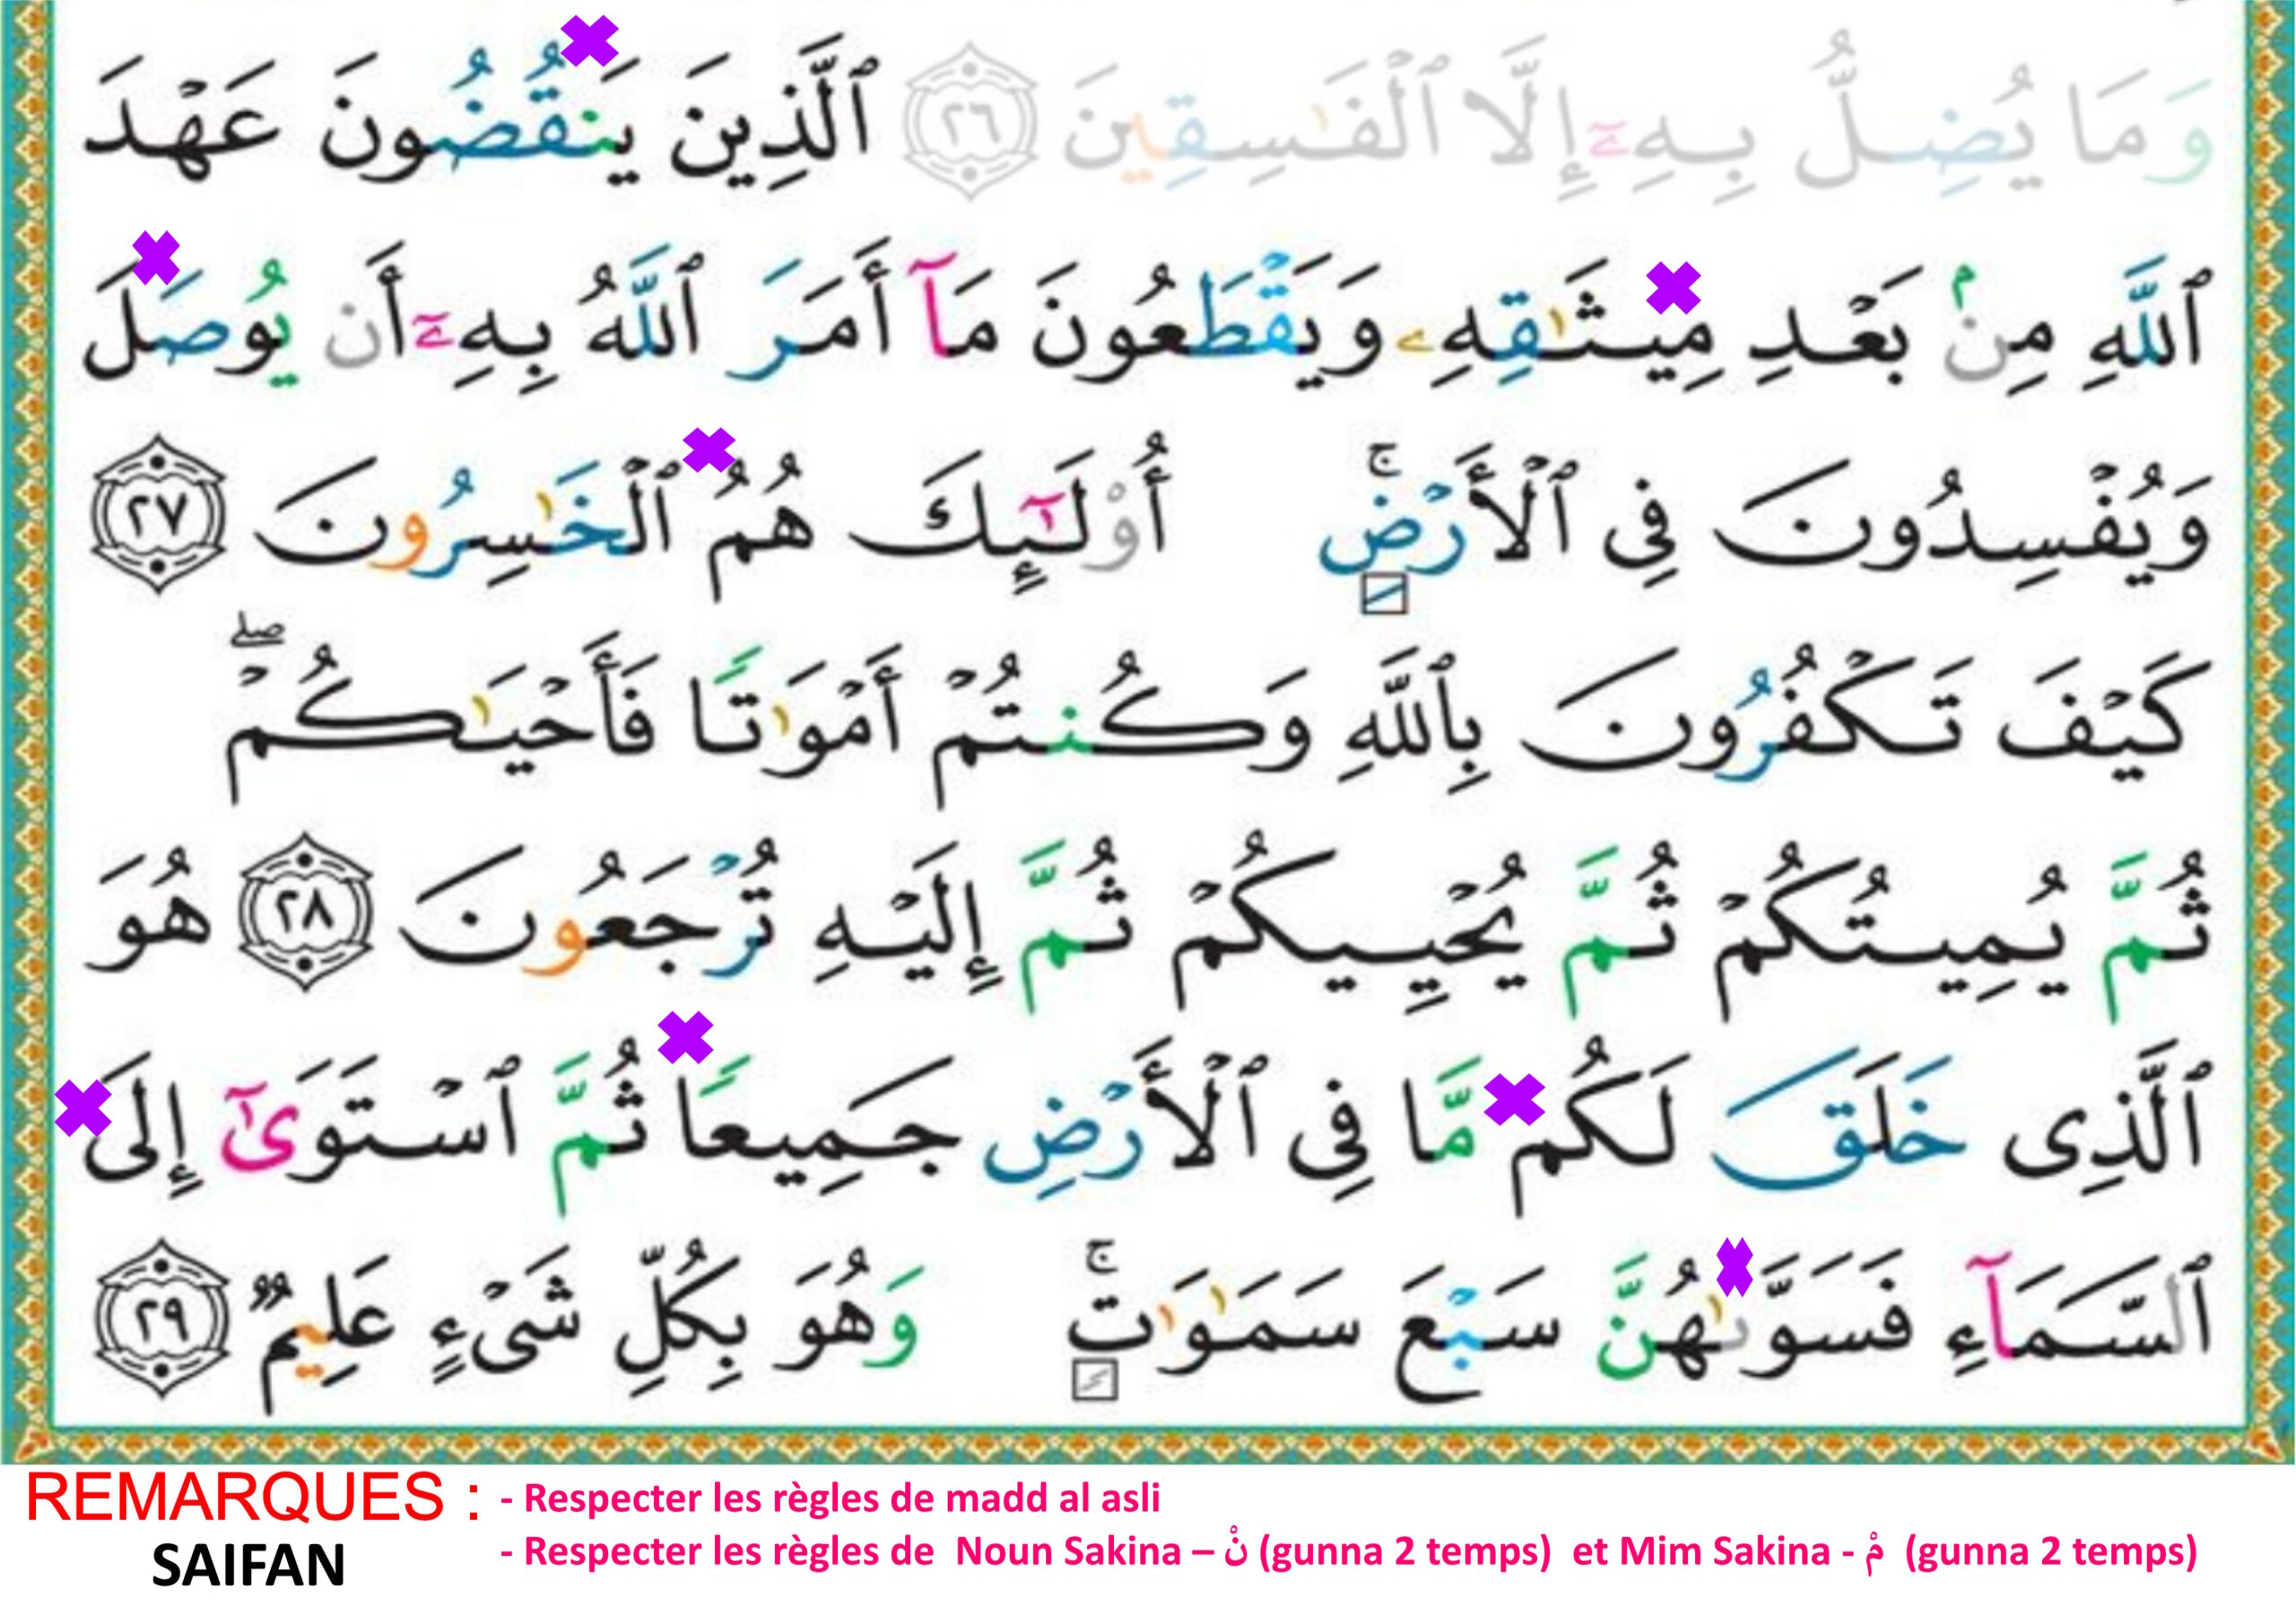 وَمَا يُضِلُّ بِهِۦٓ إِلَّا ٱلْفَـٰسِقِينَ ٢٦ ٱلَّذِينَ يَنقُضُونَ عَهْدَ
ٱللَّهِ مِنۢ بَعْدِ مِيثَـٰقِهِۦ وَيَقْطَعُونَ مَآ أَمَرَ ٱللَّهُ بِهِۦٓ أَن يُوصَلَ
وَيُفْسِدُونَ فِى ٱلْأَرْضِ ۚ أُو۟لَـٰٓئِكَ هُمُ ٱلْخَـٰسِرُونَ ٢٧
كَيْفَ تَكْفُرُونَ بِٱللَّهِ وَكُنتُمْ أَمْوَٰتًا فَأَحْيَـٰكُمْ ۖ
ثُمَّ يُمِيتُكُمْ ثُمَّ يُحْيِيكُمْ ثُمَّ إِلَيْهِ تُرْجَعُونَ ٢٨ هُوَ
ٱلَّذِى خَلَقَ لَكُم مَّا فِى ٱلْأَرْضِ جَمِيعًا ثُمَّ ٱسْتَوَىٰٓ إِلَى
ٱلسَّمَآءِ فَسَوَّىٰهُنَّ سَبْعَ سَمَـٰوَٰتٍ ۚ وَهُوَ بِكُلِّ شَىْءٍ عَلِيمٌ ٢٩
REMARQUES : - Respecter les règles de madd al asli
SAIFAN - Respecter les règles de Noun Sakina – نْ (gunna 2 temps) et Mim Sakina - مْ (gunna 2 temps)